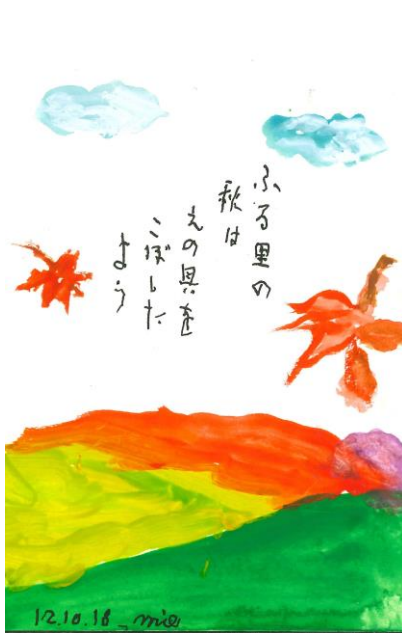 ふる里の
秋は
えの具を
こぼした
よう
12.10.18 mie